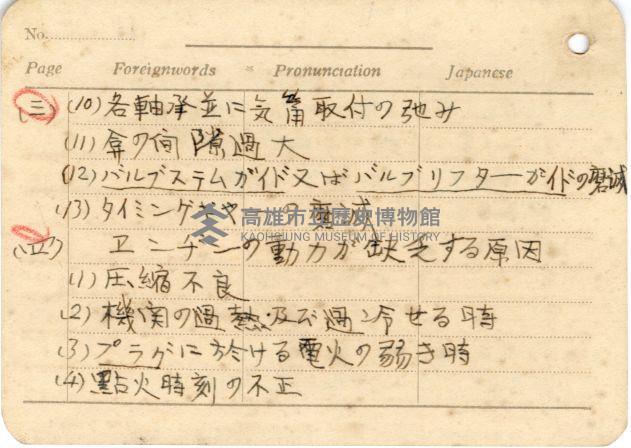 No.
Page Foreignwords Pronunciation Japanese
(三) (10) 各軸承並に気筩取付の弛み
(11) 弁の間隙過大
(12) バルブステムガイド又はバルブリフターガイドの磨滅
(13) タイミングギヤーの磨滅
高雄市立歷史博物館
KAOHSIUNG MUSEUM OF HISTORY
(四) エンヂンの動力が缺乏する原因
(1) 圧縮不良
(2) 機関の過熱及び過冷せる時
(3) プラグに於ける電火の弱き時
(4) 點火時刻の不正